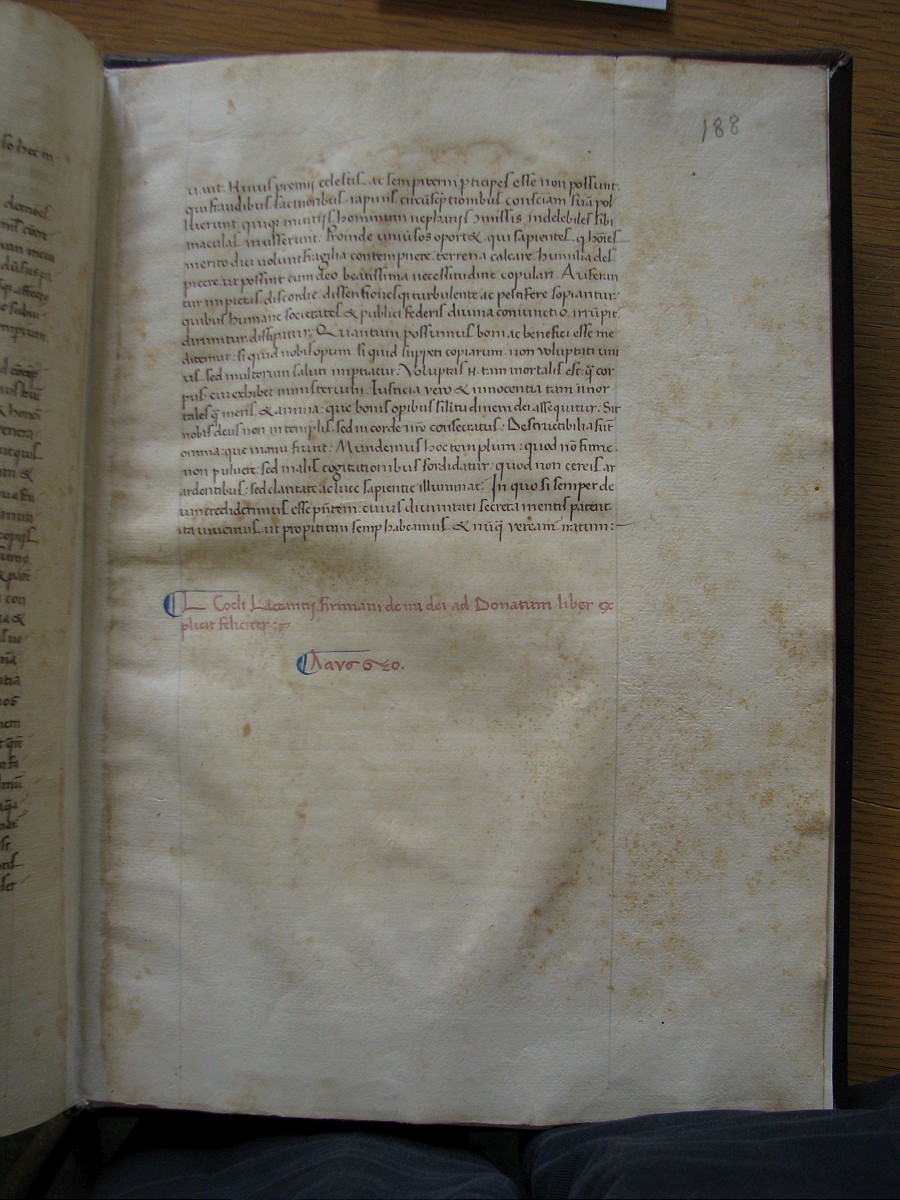 188
uiunt. Huius premij celestis ac sempiterni pticipes esse non possunt.
qui fraudibus. latrocinijs. rapinis circūscriptionibus consciam suā pol
luerunt. quiq; iniurijs hominum nephariis īmissis indelebiles sibi
maculas inusserunt. Proinde uniūsos oportet qui sapientes q hoīes
merito dici uolunt fragilia contempnere. terrena calcare. humilia des
picere. ut possint cum deo beatissima necessitudine copulari. Auferan
tur impietas discordie. dissensiones q; turbulente ac pestifere sopiantur.
quibus humane societates & publici federis diuina coniunctio irrūpit.
dirimitur. dissipatur. Quantum possumus boni ac benefici esse me
ditemur: si quid nobis opum si quid suppeti copiarum. non uoluptati uni
us. sed multorum saluti impriatur. Voluptas .n. tam mortalis est. q̄ cor
pus. cui exhibet ministerium. Iusticia uero & innocentia tam inmor
tales q̄ mens & anima: que bonis opibus silitudinem dei assequitur: Sit
nobis deus non in templis. sed in corde nr̄o consecratus. Destructibilia sūt
omnia que manu fiunt: Mundemus hoc templum: quod nō fumo.
non puluere. sed malis cogitationibus sordidatur. quod non cereis ar
ardentibus: sed claritate ac luce sapientie illuminat: In quo si semper de
um credidetimus esse pn̄tem: cuius diuinitati secreta mentis patent.
ita uiuemus. ut propitium semp habeamus & nūq̄ ueream iratum:
L Coeli Lactantij firmiani de ira dei ad Donatum liber ex
plicit feliciter: